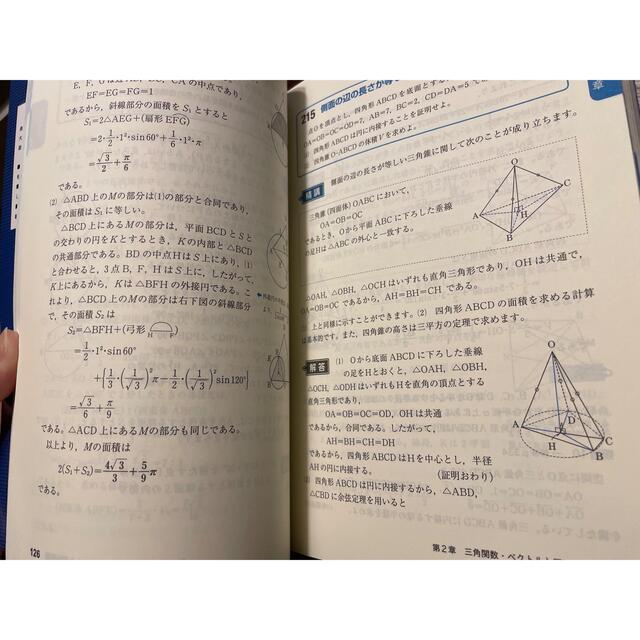 E, F, G は
CA の中点であり,
EF=EG=FG=1
であるから, 斜線部分の面積を S₁ とすると
S₁=2△AEG+(扇形 EFG)
=2・1/2・1²・sin60°+1/6・1²・π
=√3/2+π/6
である。
(2) △ABD 上の M の部分は(1)の部分と合同であり,
その面積は S₁ に等しい。
△BCD 上にある M の部分は, 平面 BCD と S と
の交わりの円を K とするとき, K の内部と △BCD
の共通部分である。BD の中点 H は S 上にあり, (1)
と合わせると, 3点 B, F, H は S 上に, したがって,
K 上にあるから, K は △BFH の外接円である。こ
れより, △BCD 上の M の部分は右下図の斜線部分
で, その面積 S₂ は
S₂=△BFH+(弓形 H F)
=1/2・1²・sin60°
+{1/3・(1/√3)²π−1/2・(1/√3)²sin120°}
=√3/6+π/9
である。△ACD 上にある M の部分も同じである。
以上より, M の面積は
2(S₁+S₂)=4√3/3+5/9π
である。
126
215 側面の辺の長さが等し
点 O を頂点とし, 四角形 ABCD を底面とする
OA=OB=OC=OD=7, AB=7, BC=2, CD=DA=5 で
四角形 ABCD は円に内接することを証明せよ。
四角錐 O-ABCD の体積 V を求めよ。
章
精講
側面の辺の長さが等しい三角錐に関して次のことが成り立ちます。
三角錐(四面体)OABC において,
OA=OB=OC
であるとき, O から平面 ABC に下ろした垂線
の足 H は △ABC の外心と一致する。
O
C
A
H
B
△OAH, △OBH, △OCH はいずれも直角三角形であり, OH は共通で,
OA=OB=OC であるから, AH=BH=CH である。
上と同様に示すことができます。(2) 四角形 ABCD の面積を求める計算
は基本的です。また, 四角錐の高さは三平方の定理で求めます。
解答
(1) O から底面 ABCD に下ろした垂線
の足を H とおくと, △OAH, △OBH,
△OCH, △ODH はいずれも H を直角の頂点とする
直角三角形であり,
OA=OB=OC=OD, OH は共通
であるから, 合同である。したがって,
AH=BH=CH=DH
であるから, 四角形 ABCD は H を中心とし, 半径
AH の円に内接する。 (証明おわり)
四角形 ABCD は円に内接するから, △ABD,
△CBD に余弦定理を用いると
O
A
D
H
C
B
第2章 三角関数・ベクトルと